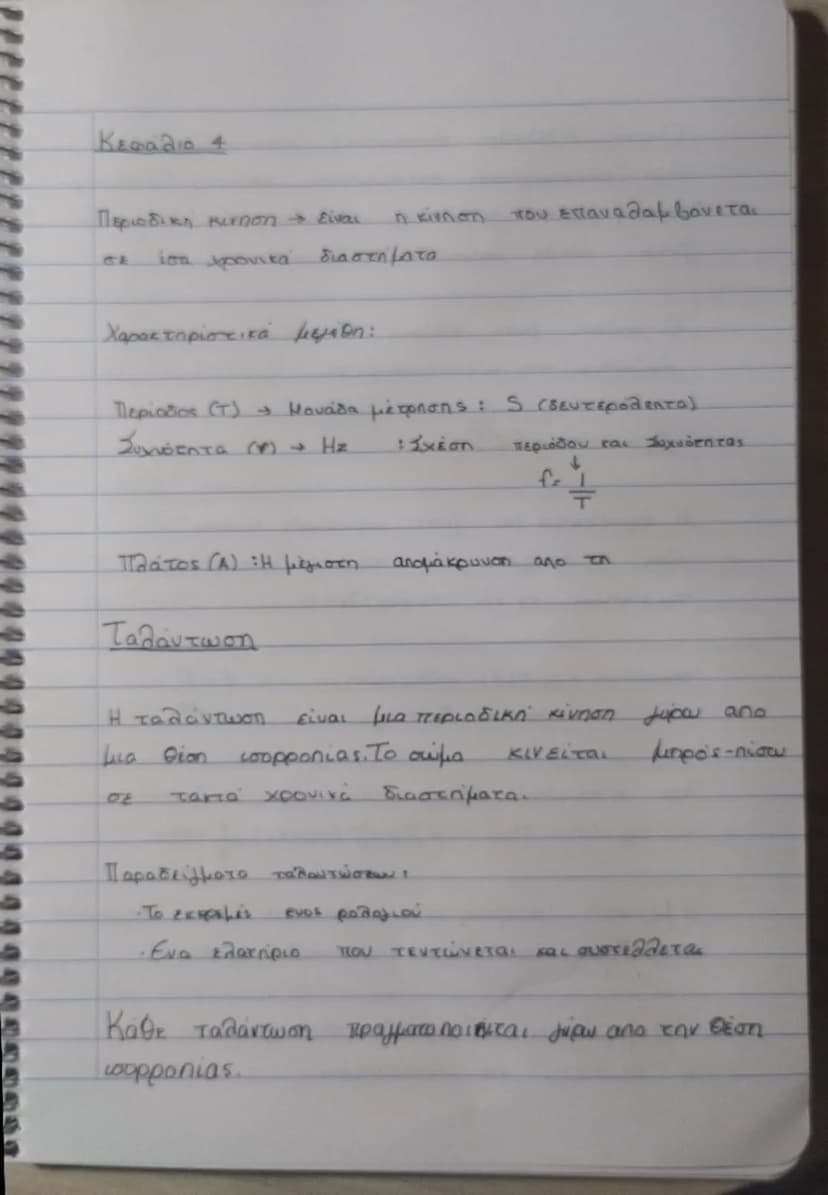 Κεφάλιο 4
Περιοδική κίνηση → είναι η κίνηση που επαναλαμβάνεται
σε ίσα χρονικά διαστήματα
Χαρακτηριστικά μεγέθη:
Περίοδος (Τ) → Μονάδα μέτρησης : S (δευτερόλεπτα)
Συχνότητα (f) → Hz : Σχέση περιόδου και Συχνότητας
↓
f= 1/T
Πλάτος (Α) : Η μέγιστη απομάκρυνση απο τη
Ταλάντωση
Η ταλάντωση είναι μια περιοδική κίνηση γύρω απο
μια θέση ισορροπίας. Το σώμα κινείται μπρός-πίσω
σε τακτά χρονικά διαστήματα.
Παραδείγματα ταλαντώσεων:
·Το εκκρεμές ενος ρολογιού
·Ενα ελατήριο που τεντώνεται και συστέλλεται
Κάθε ταλάντωση πραγματοποιείται γύρω απο την θέση
ισορροπίας.